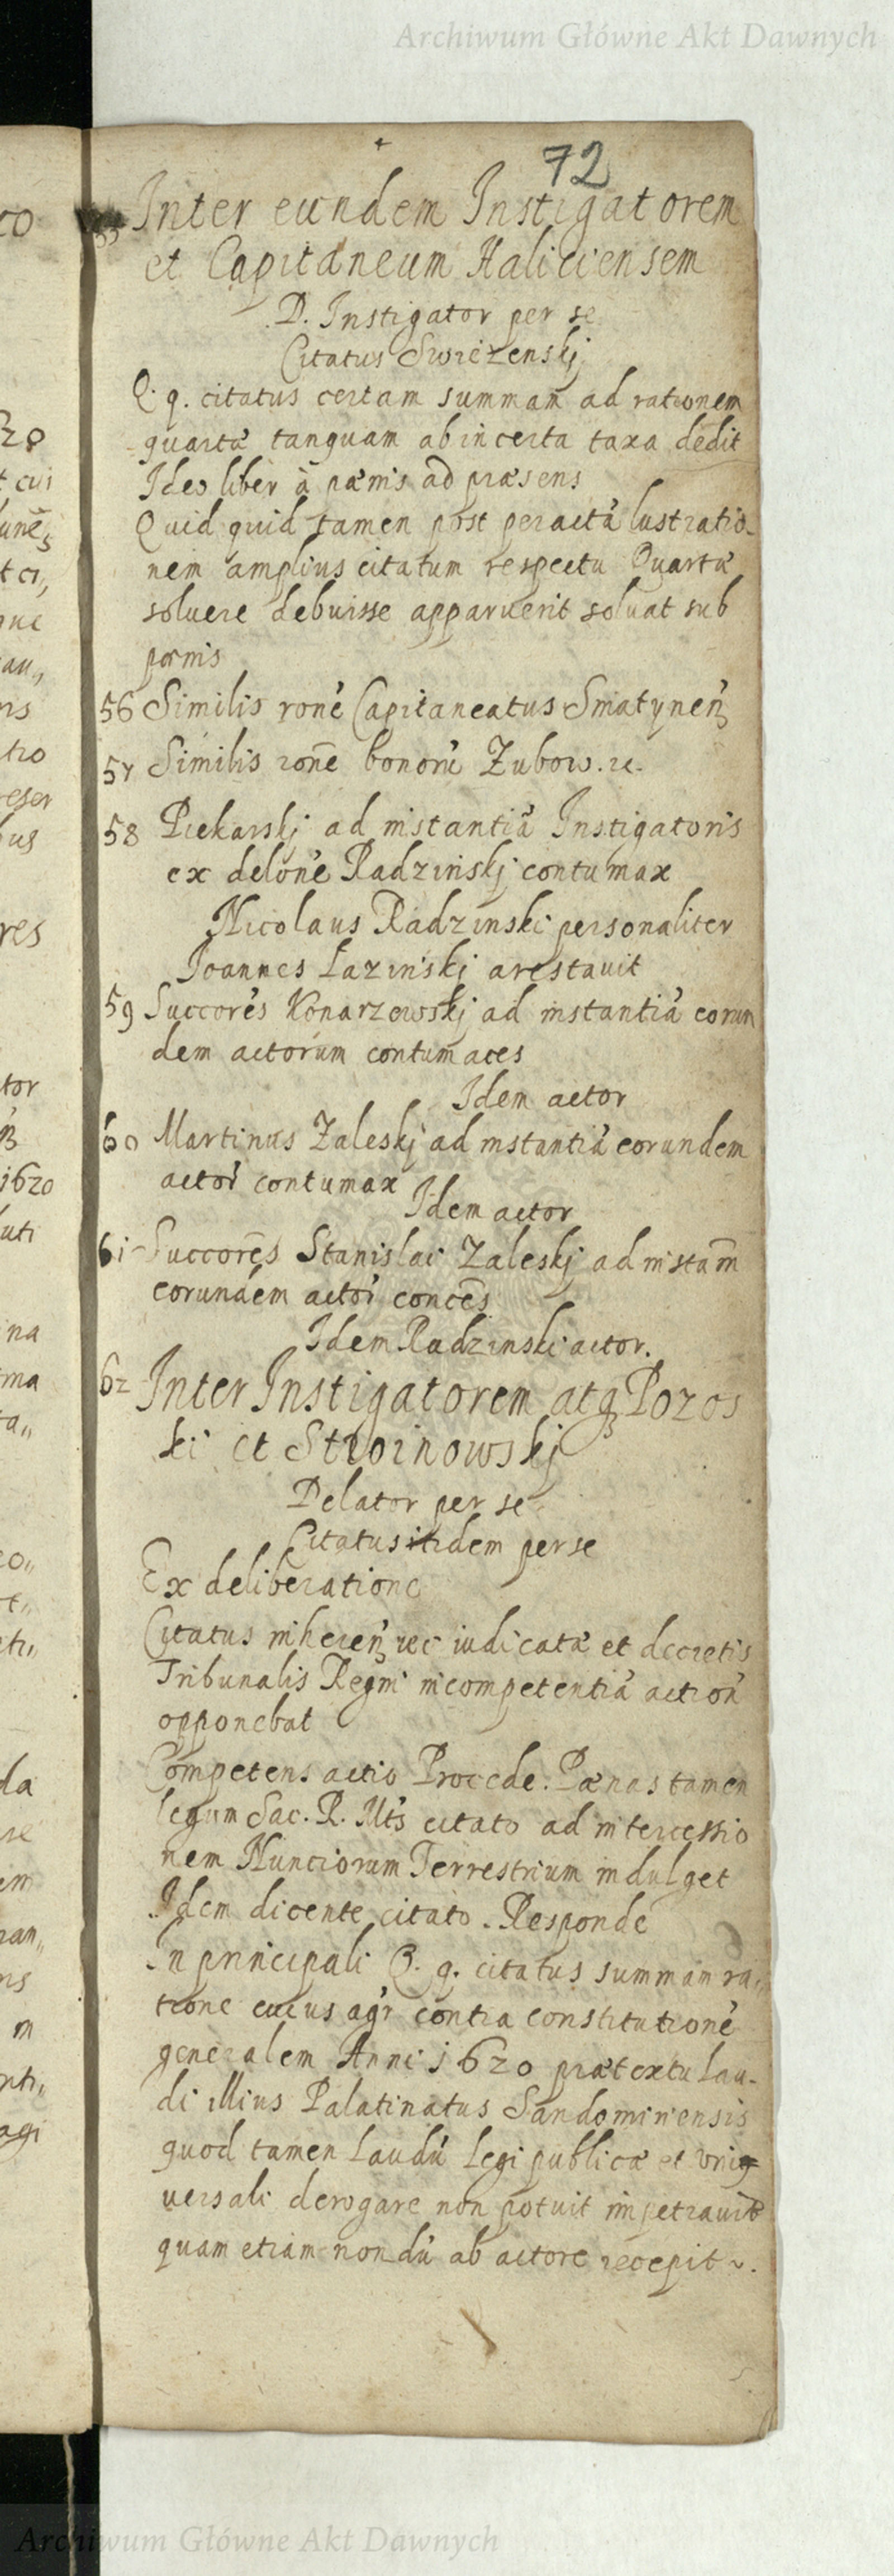 Archiwum Główne Akt Dawnych
72
55 Inter eundem Instigatorem
et Capitaneum Haliciensem
D. Instigator per se
Citatus Swiezenskj
Q. q. citatus certam summam ad rationem
quartæ tanquam ab incerta taxa dedit
Ideo liber à pænis ad præsens
Quid quid tamen post peractā lustratio-
nem amplius citatum respectu Quartæ
soluere debuisse apparuerit soluat sub
pœnis
56 Similis ronē Capitaneatus Sniatynen
57 Similis ronē bonorū Zubow. rc.
58 Piekarskj ad instantiā Instigatoris
ex delōne Radzinskj contumax
Nicolaus Radzinski personaliter
Joannes Łazinskj arestauit
59 Succorēs Konarzewskj ad instantiā eorun
dem actorum contumaces
Idem actor
60 Martinus Zaleskj ad instantiā eorundem
actoꝝ contumax
Idem actor
61 Succorēs Stanislai Zaleskj ad instam̄
eorundem actoꝝ concēs
Idem Radzinski actor.
62 Inter Instigatorem atq Pozos
ki et Stroinowskj
Delator per se
Citatus itidem per se
Ex deliberatione
Citatus inheren rei iudicatæ et decretis
Tribunalis Regni incompetentiā action
opponebat
Competens actio Procede. Pænas tamen
legum Sac. R. Mts citato ad intercessio
nem Nunciorum Terrestrium indulget
Idem dicente citato. Responde
In principali Q. q. citatus summam ra,,
tione cuius agr contra constitutionē
generalem Anni 1620 prætextu Lau-
di illius Palatinatus Sandomiriensis
quod tamen Laudū Legi publicæ et vni
uersali derogare non potuit impetrauit
quam etiam nondū ab actore recepit ~.
Archiwum Główne Akt Dawnych